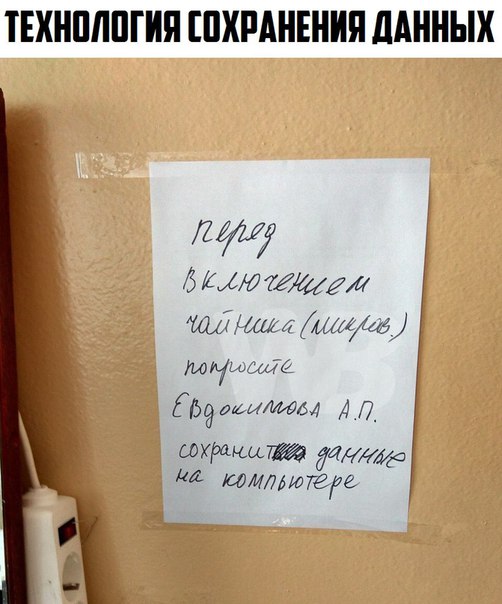 ТЕХНОЛОГИЯ СОХРАНЕНИЯ ДАННЫХ
перед
включением
чайника (микров.)
попросите
Евдокимова А.П.
сохранит данные
на компьютере